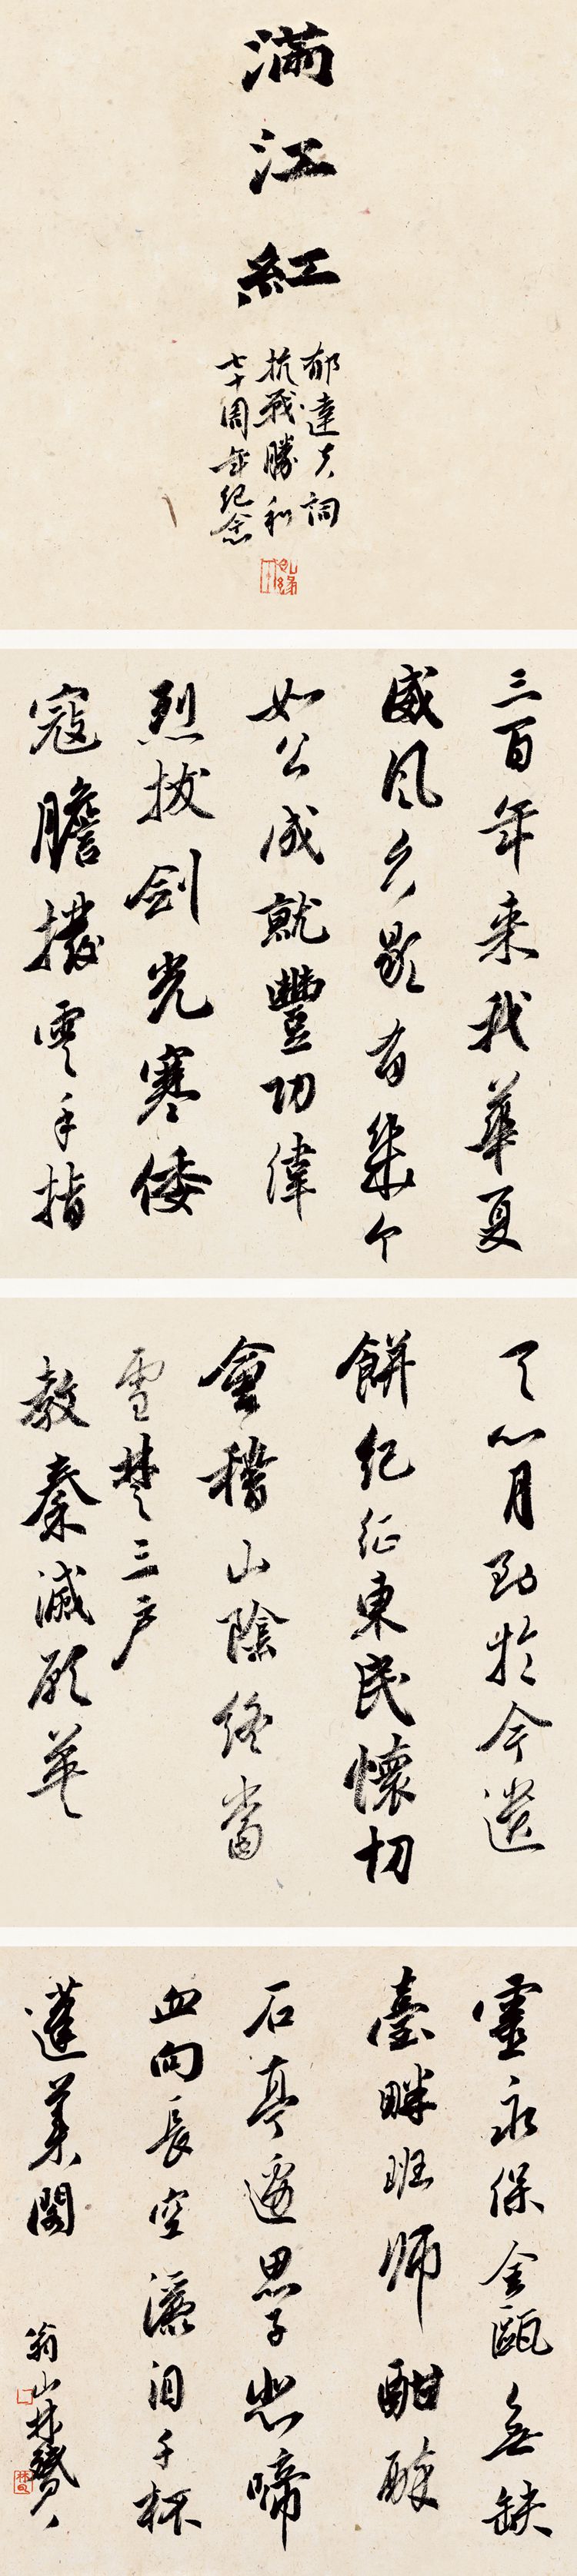 滿江紅
郁達夫詞
抗戰勝利
七十周年紀念
三百年来我華夏
威風久歇有幾个
如公成就豐功偉
烈拔劍光寒倭
寇膽撥雲手指
天心月到於今遺
餅紀征東民懷切
會稽山陰終當
雪楚三户
教秦滅願英
靈永保金甌無缺
臺畔班師酣醉
石亭邊思子悲啼
血向長空灑泪千杯
蓬莱闕
翁山林贊